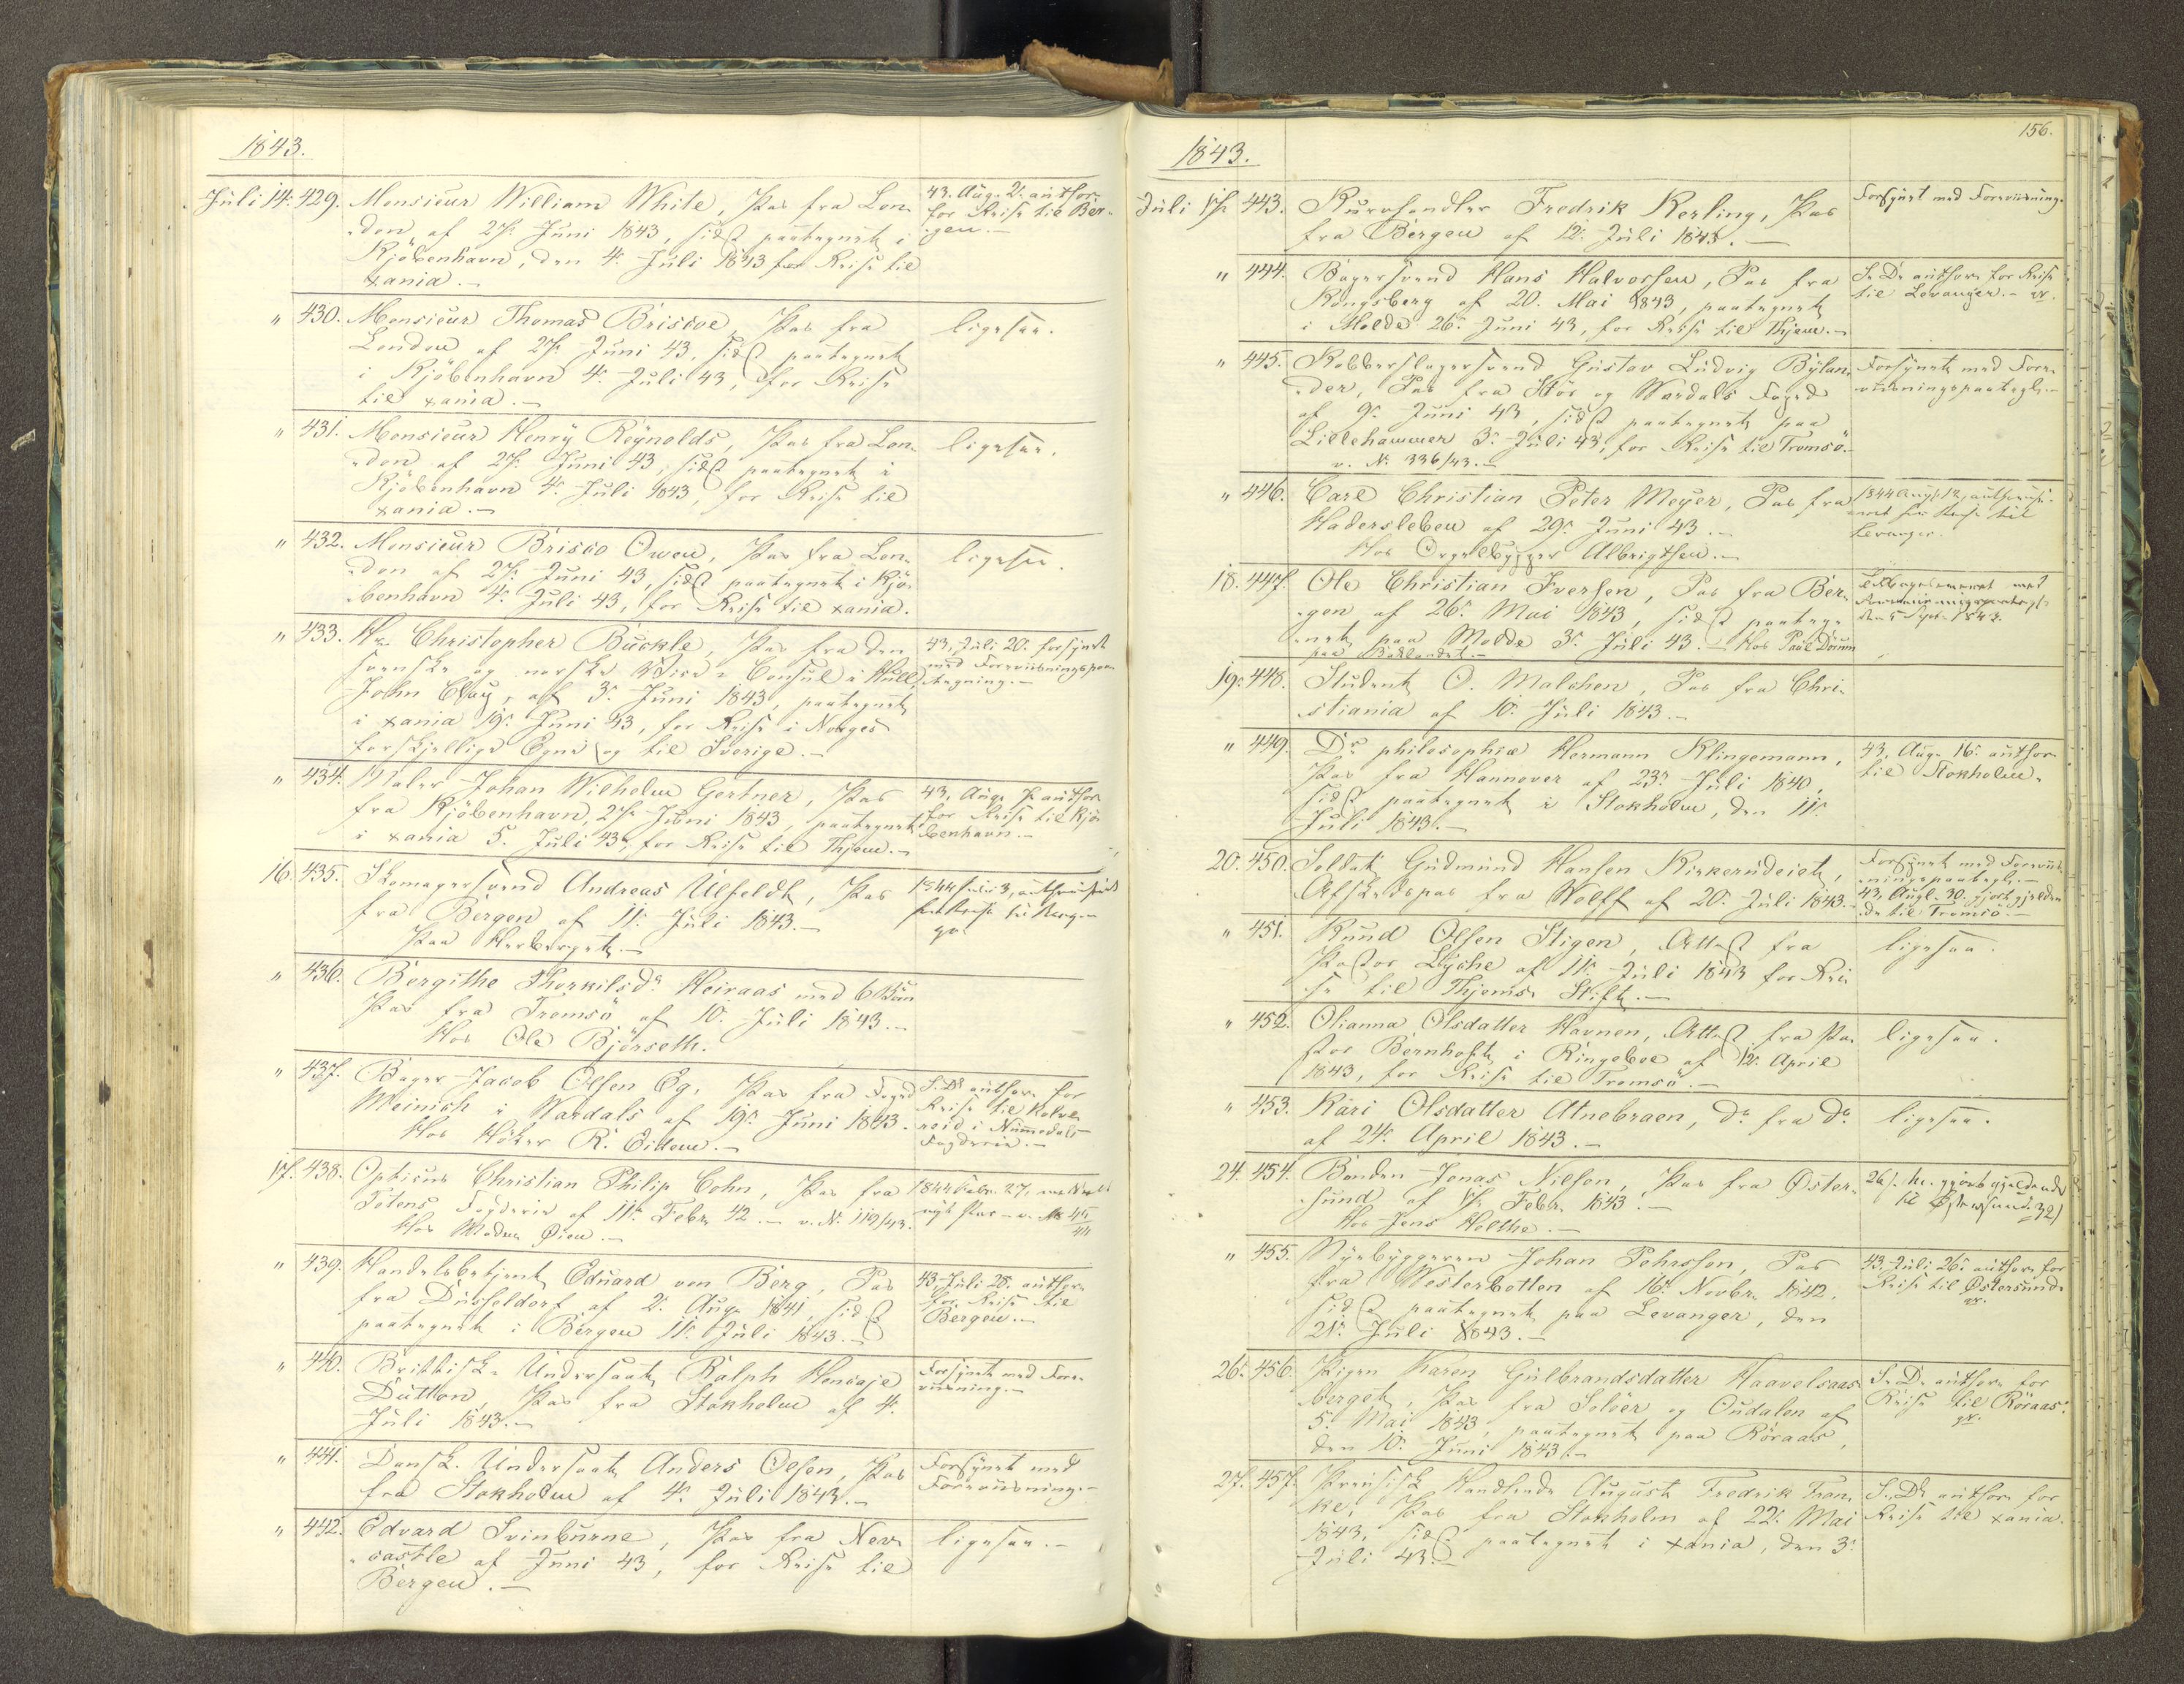 1843.
Juli 14. 429. Monsieur William White, Pas fra Lon-
don af 27. Juni 1843, sidst paategnet i
Kjöbenhavn, den 4. Juli 1843 for Reise til
xania.-
43. Aug. 2. author.
for Reise til Ber-
gen.-
" 430. Monsieur Thomas Briscoe, Pas fra
London af 27. Juni 43, sidst paategnet
i Kjöbenhavn 4. Juli 43, for Reise
til xania.-
ligesaa.
" 431. Monsieur Henry Reynolds, Pas fra Lon-
don af 27. Juni 43, sidst paategnet i
Kjöbenhavn 4. Juli 1843, for Reise til
xania.-
ligesaa.
" 432. Monsieur Brisco Owen, Pas fra Lon-
don af 27. Juni 43, sidst paategnet i Kjö-
benhavn 4. Juli 43, for Reise til xania.
ligesaa.
" 433. Hr. Christopher Buckle, Pas fra den
svenske og norske Vice-Consul i Hull,
John Clay, af 3. Juni 1843, paategnet
i xania 19. Juni 43, for Reise i Norges
forskjellige Egne og til Sverige.-
43, Juli 20. forsynet
med Foreviisningspaa-
tegning.-
" 434. Maler Johan Wilhelm Gertner, Pas
fra Kjöbenhavn, 27. Juni 1843, paategnet
i xania 5. Juli 43, for Reise til Thjem.-
43, Aug. 7. author.
for Reise til Kjö-
benhavn.-
16. 435. Skomagersvend Andreas Ulfeldt, Pas
fra Bergen af 11. Juli 1843.-
Paa Herberget.-
1844 Juli 3, authoriseret
for Reise til Bergen
" 436. Bergithe Thorkilsdr. Heiraas med 6 Börn
Pas fra Tromsö af 10. Juli 1843.-
Hos Ole Björseth.
" 437. Bager Jacob Olsen Eg, Pas fra Foged
Meinich i Værdals af 19. Juni 1843.
Hos Höker R. Eidem.-
S. D. author. for
Reise til Kolve-
reid i Nummedals
Fogderie.-
17. 438. Opticus Christian Philip Cohn, Pas fra
Totens Fogderie af 11. Febr. 42.- v. N. 119/43.
Hos Madm Øien.-
1844 Febr. 27, meddeelt
nyt Pas - v. No 45/44
" 439. Handelsbetjent Eduard von Berg, Pas
fra Düsseldorf af 2. Aug. 1841, sidst
paategnet i Bergen 11. Juli 1843.-
43. Juli 28. author.
for Reise til
Bergen.-
" 440. Brittisk Undersaat Ralph Heneage
Dutton, Pas fra Stokholm af 4.
Juli 1843.-
Forsynet med Fore-
viisning.-
" 441. Dansk Undersaat Anders Olsen, Pas
fra Stokholm af 4. Juli 1843.-
Forsynet med
Foreviisning.-
" 442. Edvard Svinburne, Pas fra New-
castle af Juni 43, for Reise til
Bergen.-
ligesaa.-
156.
1843.
Juli 17. 443. Kurvhandler Fredrik Kesling, Pas
fra Bergen af 12. Juli 1843.-
Forsynet med Foreviisning.
" 444. Bagersvend Hans Halvorsen, Pas fra
Kongsberg af 20. Mai 1843, paategnet
i Molde 26. Juni 43, for Reise til Thjem.-
S. D. author. for Reise
til Levanger.-
" 445. Kobberslagersvend Gustav Ludvig Bylan-
der, Pas fra Stör og Værdals Foged
af 9. Juni 43, sidst paategnet paa
Lillehammer 3. Juli 43, for Reise til Tromsö.-
v. N. 336/43.-
Forsynet med Fore-
viisningspaategn.-
" 446. Carl Christian Peter Meyer, Pas fra
Hadersleben af 29. Juni 43.-
Hos Orgelbygger Albrigtsen.-
1844 Aug. 12, authorise-
ret for Reise til
Levanger.
18. 447. Ole Christian Iversen, Pas fra Ber-
gen af 26. Mai 1843, sidst paateg-
net paa Molde 3. Juli 43.- Hos Paul Douum
paa Baklandet.-
Tilbageleveret med
den 5 Sept. 1843.
19. 448. Student O. Malchen, Pas fra Chri-
stiania af 10. Juli 1843.-
" 449. Dr. philosophiæ Hermann Klingemann,
Pas fra Hannover af 23. Juli 1840,
sidst paategnet i Stokholm, den 11.
Juli 1843.-
43, Aug. 16. author.
til Stokholm.
20. 450. Soldat Gudmund Hansen Kirkerudeiet,
Afskedspas fra Wolff af 20. Juli 1843.-
Forsynet med Foreviis-
ningspaategn.-
43, Aug. 30. gjort gjelden-
de til Tromsö.-
" 451. Knud Olsen Stigen, Attest fra
Pastor Lyche af 11. Juli 1843 for Rei-
se til Thjems Stift.-
ligesaa.
" 452. Olianna Olsdatter Havnen, Attest fra Pa-
stor Bernhoft i Ringeboe af 12. April
1843, for Reise til Tromsö.-
ligesaa.
" 453. Kari Olsdatter Atnebraen, Do fra Do
af 24. April 1843.-
ligesaa.
24. 454. Bonden Jonas Nilsen, Pas fra Øster-
sund af 17. Febr. 1843.-
Hos Jens Holthe.-
26/. hr. gjort gjeldende
til Østersund 32)
" 455. Nyebyggeren Johan Pehrssen, Pas
fra Westerbotten af 16. Novbr. 1842,
sidst paategnet paa Levanger, den
21. Juli 1843.-
43. Juli 26. author. for
Reise til Østersund.
26. 456. Pigen Karen Gulbrandsdatter Haavelsaas-
berget, Pas fra Solöer og Oudalen af
5. Mai 1843, paategnet paa Röraas,
den 10. Juni 1843.-
S. D. author. for
Reise til Röraas.
27. 457. Preusisk Handlende August Fredrik Fran-
ke, Pas fra Stokholm af 22. Mai
1843, sidst paategnet i xania, den 3.
Juli 43.-
S. D. author. for
Reise til xania.